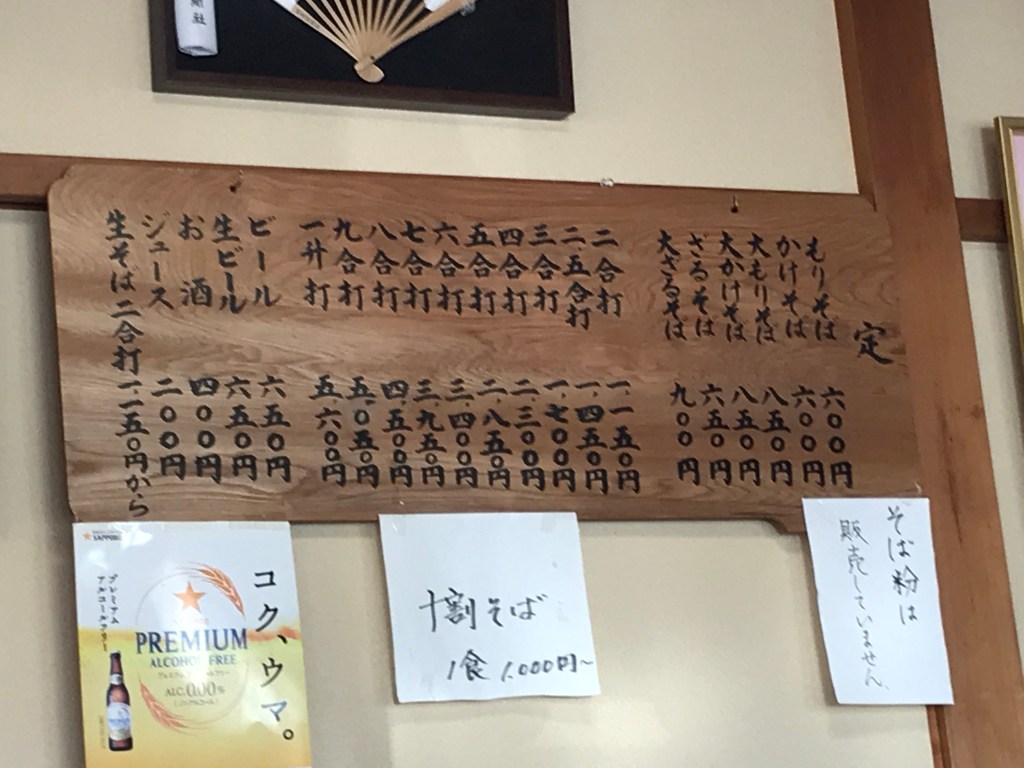 定
もりそば 六〇〇円
かけそば 六〇〇円
大もりそば 八五〇円
大かけそば 八五〇円
ざるそば 六五〇円
大ざるそば 九〇〇円
二合打 一、一五〇円
二、五合打 一、四五〇円
三合打 一、七〇〇円
四合打 二、三〇〇円
五合打 二、八五〇円
六合打 三、四〇〇円
七合打 三、九五〇円
八合打 四、五〇〇円
九合打 五、〇五〇円
一升打 五、六〇〇円
ビール 六五〇円
生ビール 六五〇円
お酒 四〇〇円
ジュース 二〇〇円
生そば二合打一一五〇円から
そば粉は
販売していません。
十割そば
1食 1.000円~
コク、ウマ。
SAPPORO
プレミアム
アルコールフリー
PREMIUM
ALCOHOL FREE
プレミアムアルコールフリー
ALC.0.00%